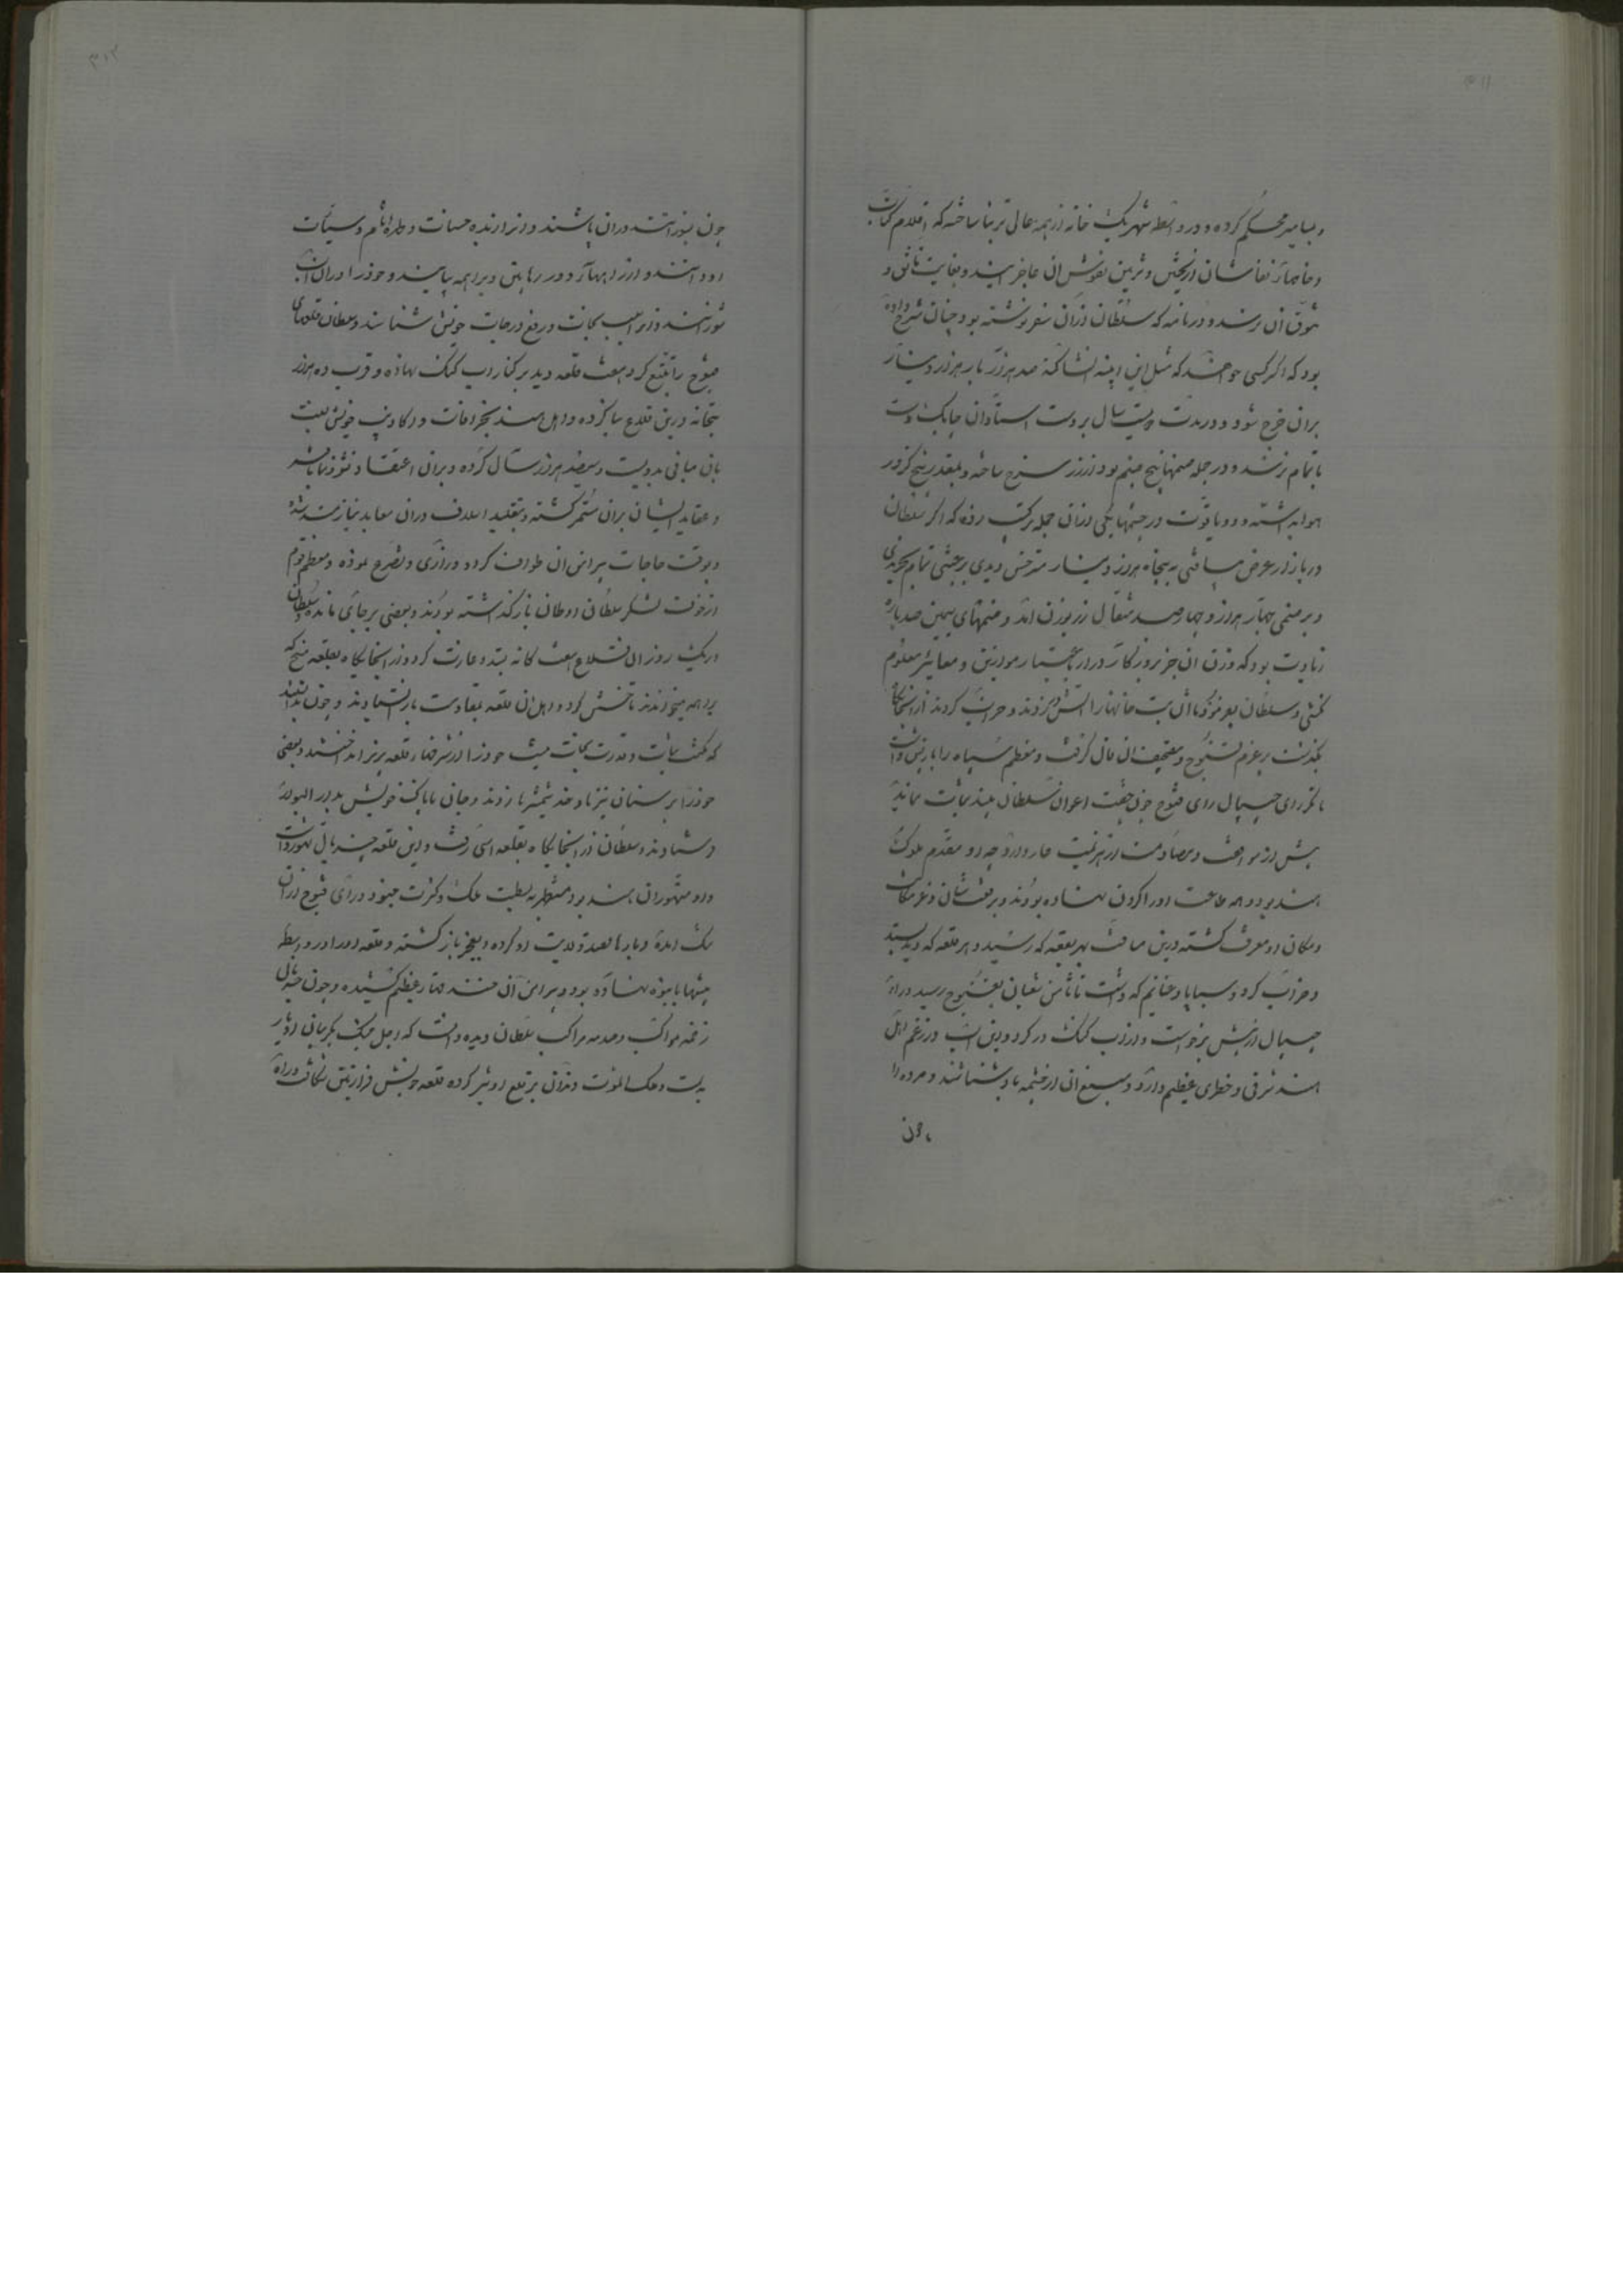 و بمسامیر محکم کرده و در واسطه شهر یک خانه از همه عالی تر بنا ساخته که اقلام کتاب
و خامهاء نقاشان از تحسین و تزیین نقوش آن عاجز آیند و بغایت تانق و
تنوق آن نرسند و در نامه که سلطان از آن سفر نوشته بود چنان شرح داده
بود که اگر کسی خواهد که مثل این ابنیه انشا کند صد هزار بار هزار دینار
بران خرج شود و در مدت دویست سال بر دست استادان چابک دست
باتمام نرسد و در جمله صنمها پنج صنم بود از زر سرخ ساخته و بمقدار پنج گز در
هوا بداشته و دو یاقوت در چشمهاء یکی از آن جمله مرکب بوده که اگر سلطان
در بازار عرض یافتی به پنجاه هزار دینار مترخص دیدی برغبتی تمام بخریدی
و بر صنمی چهار هزار و چهارصد مثقال زر بوزن آمد و صنمهای سیمین صد پاره
زیادت بود که وزن آن جز بروزگار دراز باعتبار موازین و معاییر معلوم
نگشتی و سلطان بفرمود تا آن بت خانها را آتش در زدند و خراب کردند از آنجایگاه
بگذشت بر عزم قنوج و بتصحیف آن فال گرفت و معظم سپاه را باز پس گذاشت
تا مگر رای جیپال رای قنوج چون خفت اعوان سلطان بیند بثبات نماید
پیش از مواقفت و مصادمت از هزیمت عار دارد چه او مقدم ملوک
هند بود و همه طاعت او را گردن نهاده بودند و برفعت شان و عز مکان
و مکان او معترف گشته درین مسافت بهر بقعه که رسید و هر قلعه که دید بستد
و خراب کرد و سبایا و غنایم که داشت تا ثامن شعبان بقنوج رسید و رای
جیپال از پیش برخاست و از آب گنگ در گذرد و این آب در زعم اهل
هند شرفی و خطری عظیم دارد و منبع آن از چشمه شناسند و مرده را
چون
چون بسوزانند در آن پاشند و آنرا زنده حسنات و طهره آثام و سیئات
او دانند و از راههاء دور رهابین و براهمه بیایند و خود را در آن آب
شویند و آنرا سبب نجات و رفع درجات خویش شناسند و سلطان قلعهای
قنوج را تتبع کرد هفت قلعه دید بر کنار آب گنگ نهاده و قرب ده هزار
بتخانه درین قلاع بنا کرده و اهل هند بخرافات و اکاذیب خویش نسبت
آن مبانی بدویست و سیصد هزار سال کرده و بران اعتقاد نشو یافته
و عقاید ایشان بران مستمر گشته و بتقلید اسلاف در آن معابد نیازمند شده
و بوقت حاجات پیرامن آن طواف کرده و زاری و تضرع نموده و معظم قوم
از خوف لشکر سلطان اوطان باز گذاشته بودند و بعضی بر جای مانده سلطان
در یک روز آن قلاع هفت گانه بستد و غارت کرد و از آنجایگاه بقلعه منج که
براهمه میخواندند تاختن کرد و اهل آن قلعه بمقاومت باز ایستادند و چون بدانستند
که مکنت ثبات و قدرت نجات نیست خود را از شرفهاء قلعه بزیر انداختند و بعضی
خود را بر سنان نیزه و حد شمشیر باز زدند و جان ناپاک خویش بدار البوار
فرستادند و سلطان از آنجایگاه بقلعه اسی رفت و این قلعه چندبال بهور داشت
و او متهوران هند بود مستظهر به بسطت ملک و کثرت جنود و رای قنوج از آن
تنگ آمده و بارها قصد ولایت او کرده و بعجز باز گشته و قلعه او را در واسطه
بیشها با نیزه نهاده بود و پیرامن آن خندقهاء عظیم کشیده و چون جندبال
زخمه مواکب و صدمه مراکب سلطان دید دانست که اجل چنگ بگریبان او باز
بست و ملک الموت دندان بر قلع او تیز کرده قلعه خویش فراز تنگ شکافت و راه